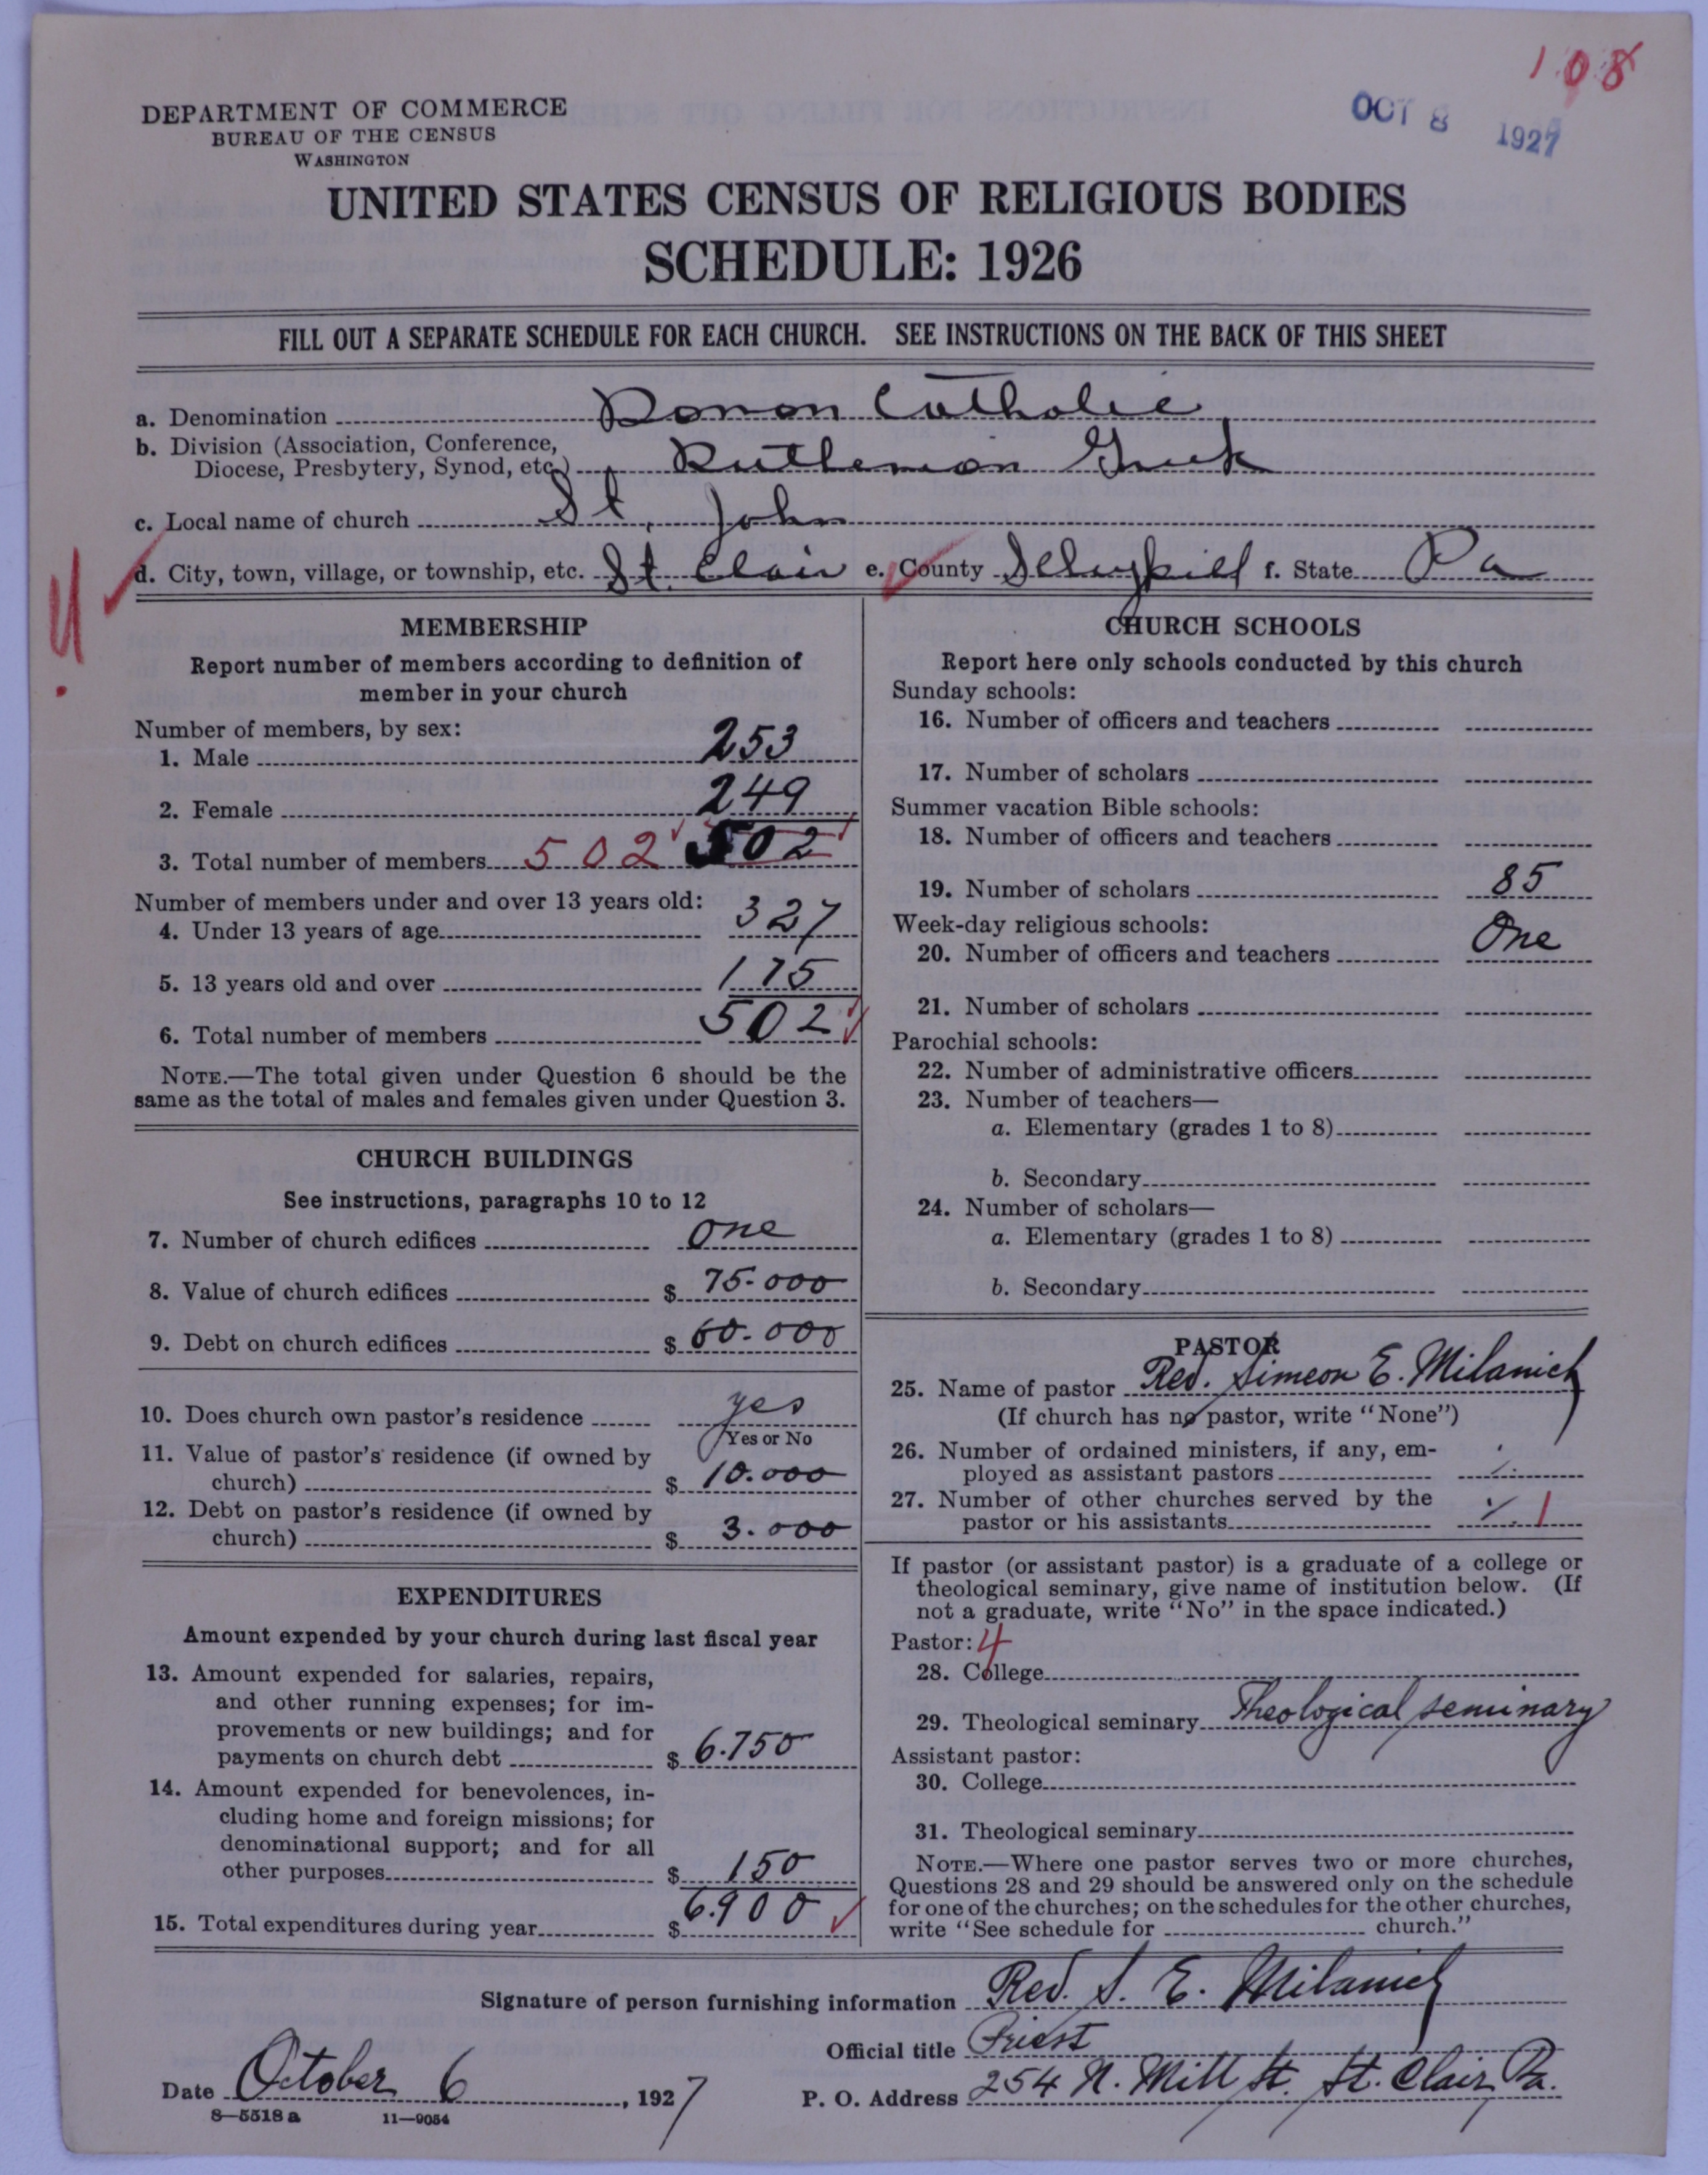 108
OCT 8 1927
DEPARTMENT OF COMMERCE
BUREAU OF THE CENSUS
WASHINGTON
UNITED STATES CENSUS OF RELIGIOUS BODIES
SCHEDULE: 1926
FILL OUT A SEPARATE SCHEDULE FOR EACH CHURCH. SEE INSTRUCTIONS ON THE BACK OF THIS SHEET
a. Denomination Roman Catholic
b. Division (Association, Conference,
Diocese, Presbytery, Synod, etc.) Ruthenian Greek
c. Local name of church St. John
d. City, town, village, or township, etc. St. Clair e. County Schuylkill f. State Pa
MEMBERSHIP
Report number of members according to definition of
member in your church
Number of members, by sex:
1. Male 253
2. Female 249
3. Total number of members 502 502
Number of members under and over 13 years old:
4. Under 13 years of age 327
5. 13 years old and over 175
6. Total number of members 502
NOTE.—The total given under Question 6 should be the
same as the total of males and females given under Question 3.
CHURCH BUILDINGS
See instructions, paragraphs 10 to 12
7. Number of church edifices one
8. Value of church edifices $ 75.000
9. Debt on church edifices $ 60.000
10. Does church own pastor's residence yes
Yes or No
11. Value of pastor's residence (if owned by
church) $ 10.000
12. Debt on pastor's residence (if owned by
church) $ 3.000
EXPENDITURES
Amount expended by your church during last fiscal year
13. Amount expended for salaries, repairs,
and other running expenses; for im-
provements or new buildings; and for
payments on church debt $ 6.750
14. Amount expended for benevolences, in-
cluding home and foreign missions; for
denominational support; and for all
other purposes $ 150
15. Total expenditures during year $ 6.900
CHURCH SCHOOLS
Report here only schools conducted by this church
Sunday schools:
16. Number of officers and teachers
17. Number of scholars
Summer vacation Bible schools:
18. Number of officers and teachers
19. Number of scholars 85
Week-day religious schools:
20. Number of officers and teachers One
21. Number of scholars
Parochial schools:
22. Number of administrative officers
23. Number of teachers—
a. Elementary (grades 1 to 8)
b. Secondary
24. Number of scholars—
a. Elementary (grades 1 to 8)
b. Secondary
PASTOR
25. Name of pastor Rev. Simeon E. Milanich
(If church has no pastor, write "None")
26. Number of ordained ministers, if any, em-
ployed as assistant pastors
27. Number of other churches served by the
pastor or his assistants 1
If pastor (or assistant pastor) is a graduate of a college or
theological seminary, give name of institution below. (If
not a graduate, write "No" in the space indicated.)
Pastor: 4
28. College
29. Theological seminary Theological seminary
Assistant pastor:
30. College
31. Theological seminary
NOTE.—Where one pastor serves two or more churches,
Questions 28 and 29 should be answered only on the schedule
for one of the churches; on the schedules for the other churches,
write "See schedule for church."
Signature of person furnishing information Rev. S. E. Milanich
Official title Priest
Date October 6, 1927 P. O. Address 254 N. Mill St. St. Clair, Pa.
8—5518 a 11—9054